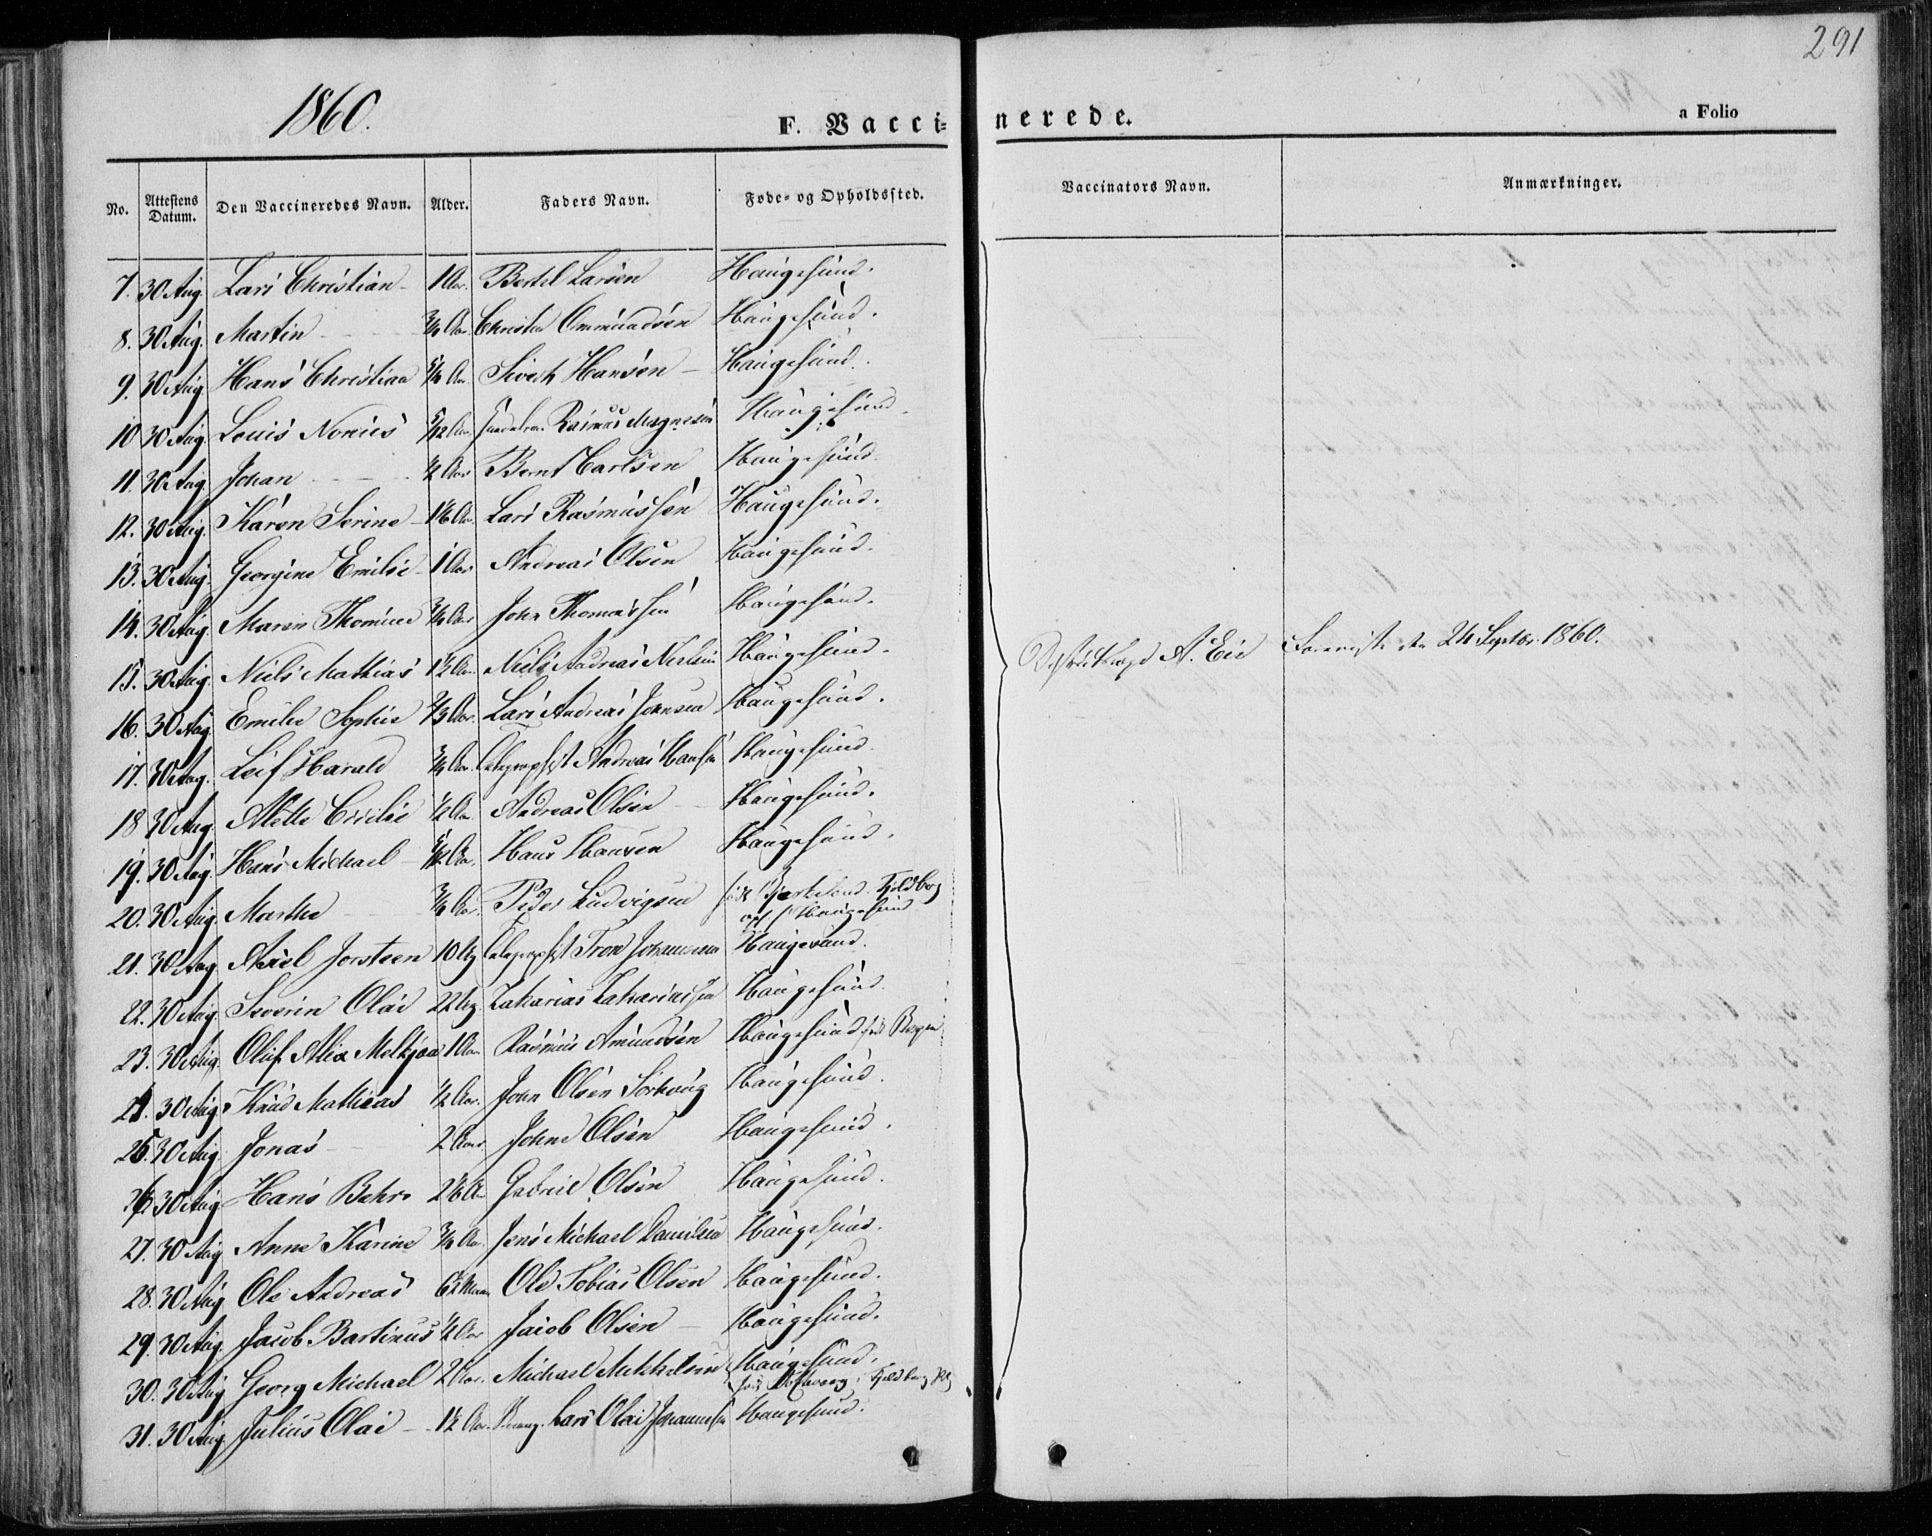 291
1860.
F. Vacci- nerede.
a Folio
No. Attestens Datum. Den Vaccineredes Navn. Alder. Faders Navn. Føde- og Opholdssted. Vaccinators Navn. Anmærkninger.
7. 30 Aug. Lars Christian 1 Aar. Bertel Larsen Haugesund.
8. 30 Aug. Martin 3/4 Aar Christen Ommundsen Haugesund.
9. 30 Aug Hans Christian Aar Hansen Haugesund.
10 30 Aug. Louis Norius 5/12 Aar Rasmus Magnesen Haugesund.
11. 30 Aug. Johan 1/2 Aar Bernt Carlsen Haugesund.
12. 30 Aug. Karen Serine Aar. Lars Rasmussen Haugesund.
13. 30 Aug. Georgine Emilie 1 Aar Andreas Olsen Haugesund.
14. 30 Aug. Maren Thomine 3/4 Aar John Thomassen Haugesund.
15. 30 Aug. Niels Mathias 1 1/2 Aar Niels Andreas Nielsen Haugesund. A. Eie den 24 Septbr. 1860.
16. 30 Aug Emilie Sophie 2/3 Aar. Lars Andreas Johnsen Haugesund.
17. 30 Aug. Leif Harald 3/4 Aar. Telegraphist Andreas Hansen Haugesund.
18 30 Aug. Mette Cecilie 1/2 Aar Andreas Olsen Haugesund.
19. 30 Aug. Hans Michael Aar. Hans Hansen Haugesund.
20. 30 Aug Marthe 3/4 Aar. Peder Ludvigsen Fjeldberg
Haugesund
21. 30 Aug Axel Jorsteen 10 Telegraphist Tron Johannesen Haugesund.
22. 30 Aug. Severin Olai 22 Zakarias Zakariassen Haugesund.
23. 30 Aug. Oluf Alex Melkjær 1 Aar Rasmus Amundsen Haugesund Bergen
24. 30 Aug. Knud Mathias 1/2 Aar. John Olsen Haugesund.
25. 30 Aug. Jonas 2 Aar John Olsen Haugesund.
26. 30 Aug Hans Behr Gabriel Olsen Haugesund.
27. 30 Aug Anne Karine 3/4 Aar. Jens Michael Danielsen Haugesund.
28. 30 Aug Ole Andreas 6 1/2 Ole Tobias Olsen Haugesund.
29. 30 Aug. Jacob Bartinus 1/2 Aar Jacob Olsen Haugesund.
30. 30 Aug Georg Michael 2 Aar. Michael Mikkelsen Haugesund.
Fjeldberg
31. 30 Aug. Julius Olai 1 1/2 Aar. Lars Olai Johannesen Haugesund.